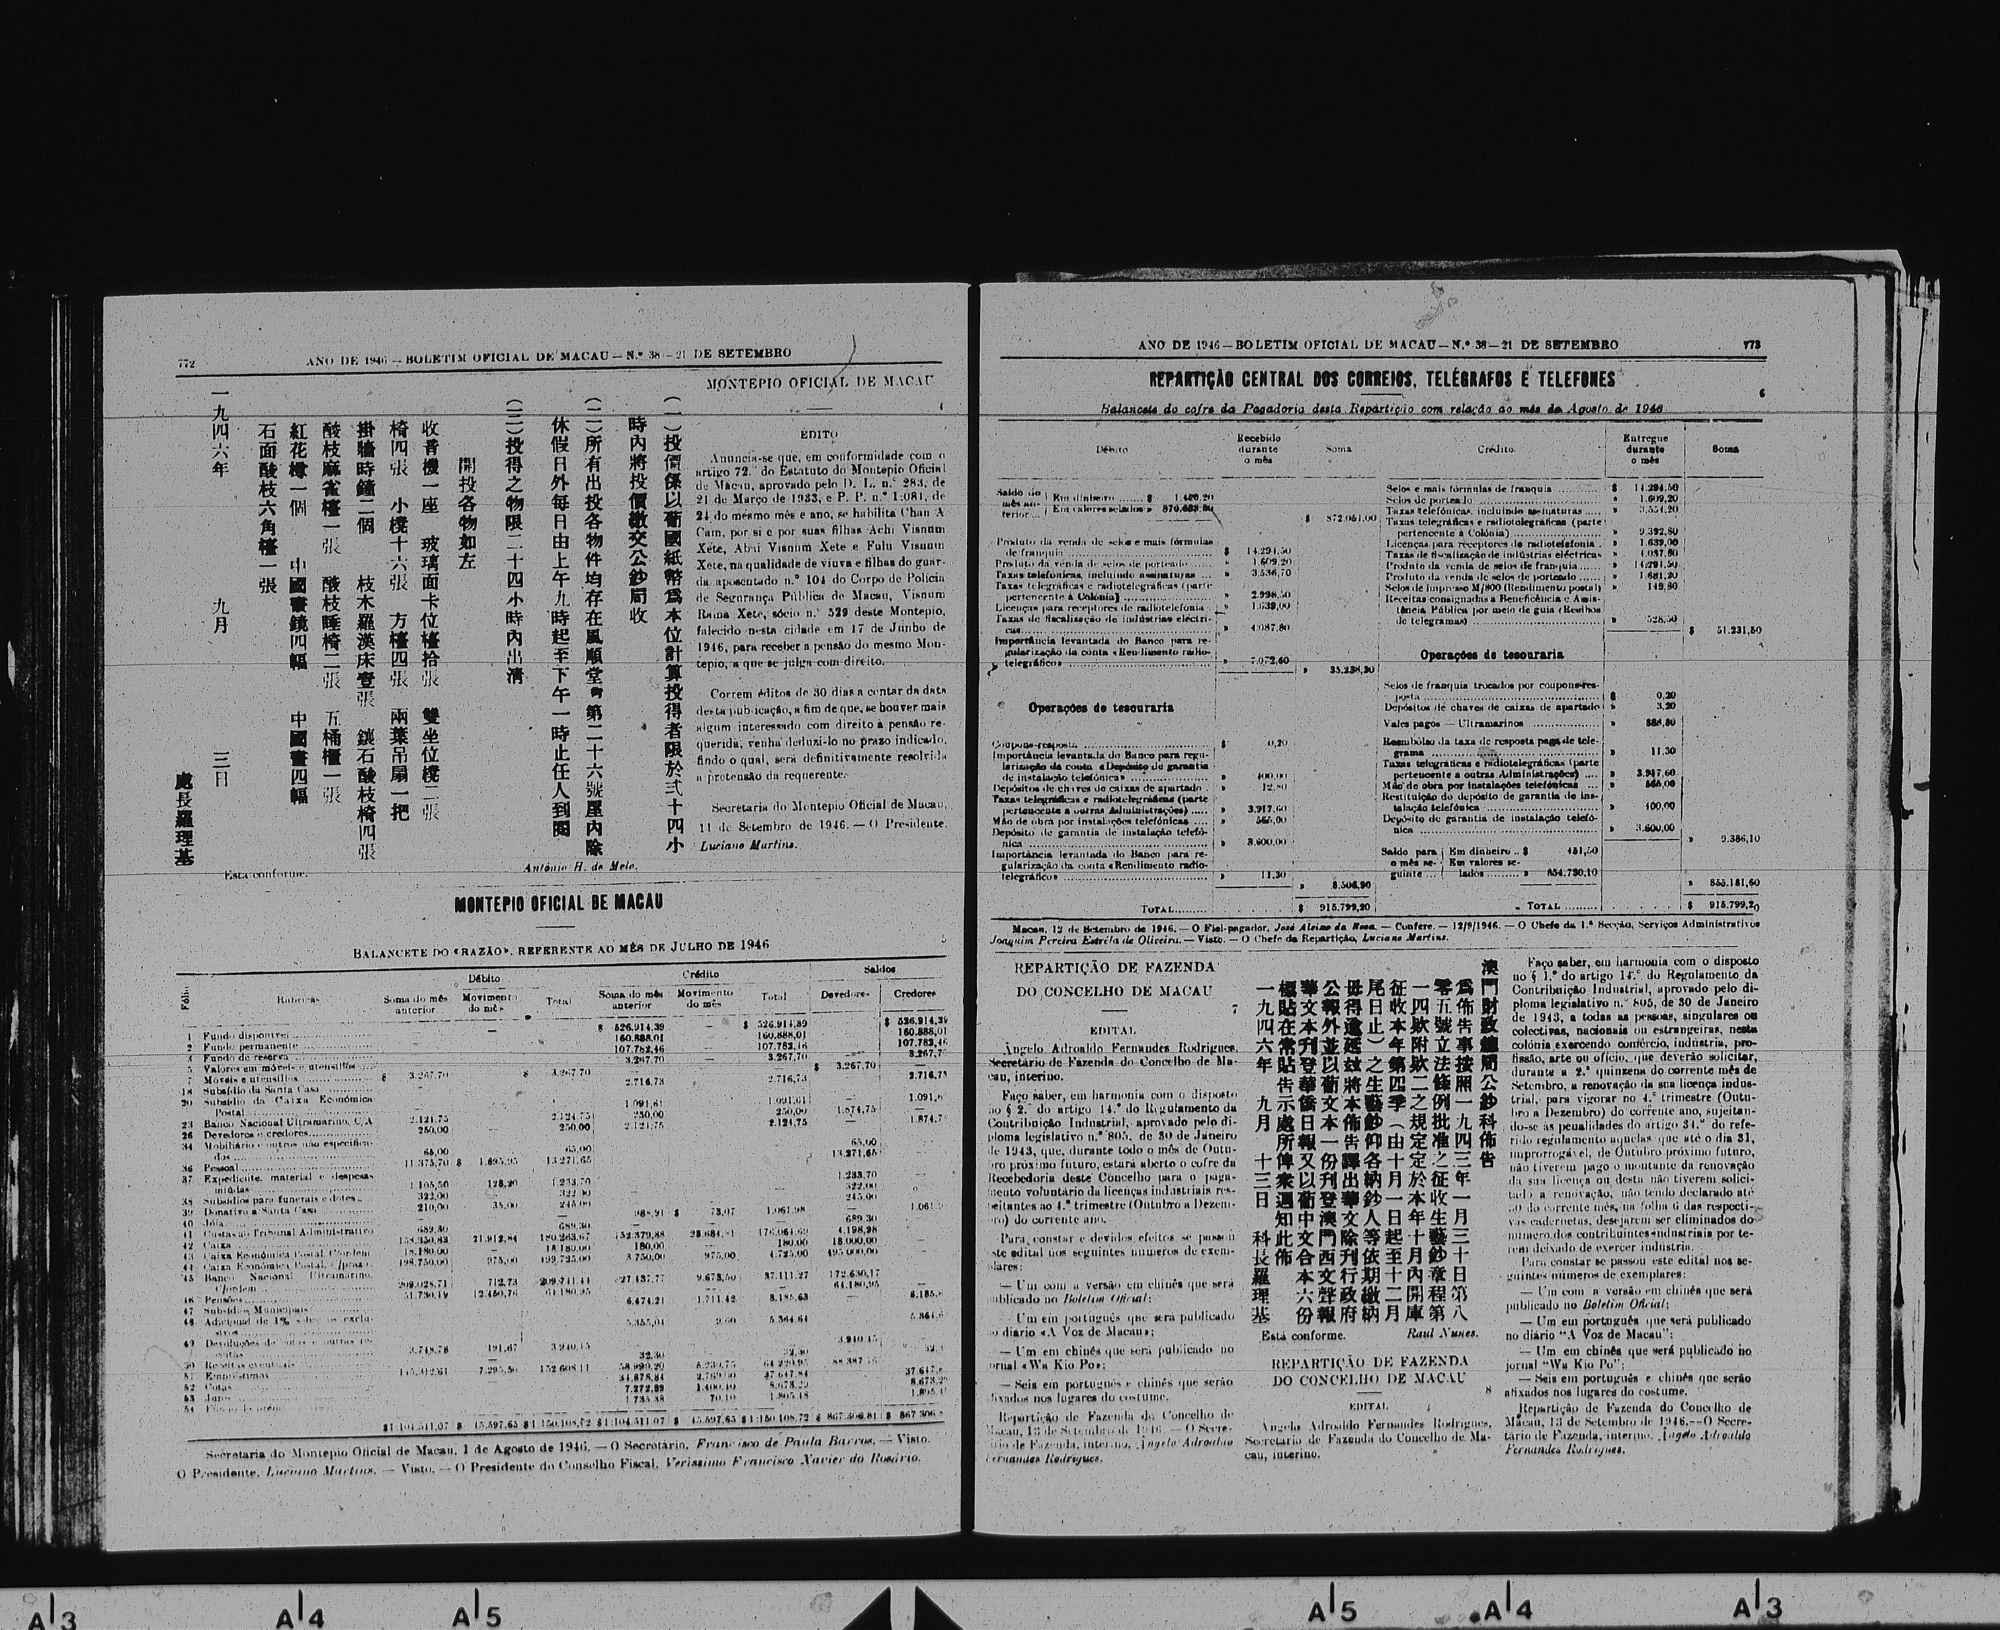 772
ANO DE 1946 — BOLETIM OFICIAL DE MACAU — N.º 38 — 21 DE SETEMBRO
(一)投價係以葡國紙幣爲本位計算投得者限於弍十四小
時內將投價繳交公鈔局收
(二)所有出投各物件均存在風順堂街第二十六號屋內除
休假日外每日由上午九時起至下午一時止任人到閱
(三)投得之物限二十四小時內出清
開投各物如左
收音機一座 玻璃面卡位檯拾張 雙坐位櫈二張
椅四張 小櫈十六張 方檯四張 兩葉吊扇一把
掛牆時鐘二個 枝木羅漢床壹張 鑲石酸枝椅四張
酸枝麻雀檯一張 酸枝睡椅二張 五桶櫃一張
紅花樽一個 中國畫鏡四幅 中國畫四幅
石面酸枝六角檯一張
一九四六年 九月 三日
處長羅理基
Está conforme.
António H. de Melo.
MONTEPIO OFICIAL DE MACAU
ÉDITO
Anuncia-se que, em conformidade com o
artigo 72.º do Estatuto do Montepio Oficial
de Macau, aprovado pelo D. L. n.º 283, de
21 de Março de 1933, e P. P. n.º 1:081, de
24 do mesmo mês e ano, se habilita Chan A
Cam, por si e por suas filhas Achi Visnum
Xete, Abai Visnum Xete e Fulu Visnum
Xete, na qualidade de viuva e filhas do guar-
da aposentado n.º 104 do Corpo de Polícia
de Segurança Pública de Macau, Visnum
Rama Xete, sócio n.º 529 deste Montepio,
falecido nesta cidade em 17 de Junho de
1946, para receber a pensão do mesmo Mon-
tepio, a que se julga com direito.
Correm éditos de 30 dias a contar da data
desta publicação, a fim de que, se houver mais
algum interessado com direito à pensão re-
querida, venha deduzi-lo no prazo indicado,
findo o qual, será definitivamente resolvida
a pretensão da requerente.
Secretaria do Montepio Oficial de Macau,
11 de Setembro de 1946. — O Presidente,
Luciano Martins.
MONTEPIO OFICIAL DE MACAU
BALANCETE DO «RAZÃO», REFERENTE AO MÊS DE JULHO DE 1946
Rubricas Débito Crédito Saldos
Soma do mês anterior Movimento do mês Total Soma do mês anterior Movimento do mês Total Devedores Credores
1 Fundo disponível — $ 526.914,39 — $ 526.914,39 $ 526.914,39
2 Fundo permanente 160.888,01 160.888,01 160.888,01
4 Fundo de reserva 107.782,46 107.782,46
5 Valores em móveis e utensílios 3.267,70 3.267,70
7 Móveis e utensílios $ 3.267,70 $ 3.267,70 $ 3.267,70
18 Subsídio da Santa Casa 2.716,73 2.716,73
20 Subsídio da Caixa Económica
Postal
23 Banco Nacional Ultramarino, C/A 2.124,75 2.124,75
26 Devedores e credores 250,00 250,00
34 Mobiliário e outros não especifica-
dos 65,00 65,00
36 Pessoal 11.375,70 $ 1.895,95 13.271,65
37 Expediente, material e despesas
miúdas 1.105,50 128,20 1.233,70
38 Subsídios para funerais e dotes 322,00 322,00
39 Donativo a Santa Casa 210,00 35,00 245,00
40 Jóia
41 Custas ao Tribunal Administrativo
42 Caixa
43 Caixa Económica Postal, C/ordem
44 Caixa Económica Postal, C/prazo
45 Banco Nacional Ultramarino,
C/ordem
46 Pensões
47 Subsídios Municipais
49 Devoluções de cotas e outras re-
ceitas
50 Receitas eventuais
51 Empréstimos
52 Cotas
53 Juros
Secretaria do Montepio Oficial de Macau, 1 de Agosto de 1946. — O Secretário, Francisco de Paula Barros. — Visto.
O Presidente, Luciano Martins. — Visto. — O Presidente do Conselho Fiscal, Veríssimo Francisco Xavier do Rosário.
ANO DE 1946 — BOLETIM OFICIAL DE MACAU — N.º 38 — 21 DE SETEMBRO
773
REPARTIÇÃO CENTRAL DOS CORREIOS, TELÉGRAFOS E TELEFONES
6
Balancete do cofre da Pagadoria desta Repartição com relação ao mês de Agosto de 1946
Débito Recebido durante o mês Soma
Saldo do mês anterior
Em dinheiro $
Em valores selados »
$ 872.051,00
Produto da venda de selos e mais fórmulas
de franquia $ 14.294,50
Produto da venda de selos de porteado » 1.609,20
Taxas telefónicas, incluindo assinaturas » 3.536,70
Taxas telegráficas e radiotelegráficas (parte
pertencente à Colónia) » 2.998,50
Licenças para receptores de radiotelefonia » 1.639,00
Taxas de fiscalização de indústrias eléctri-
cas » 4.087,80
Importância levantada do Banco para re-
gularização da conta «Rendimento radio-
telegráfico» » 7.072,60
» 35.238,30
Operações de tesouraria
Coupons-resposta $ 0,20
Importância levantada do Banco para regu-
larização da conta «Depósito de garantia
de instalação telefónica» » 400,00
Depósitos de chaves de caixas de apartado » 12,80
Taxas telegráficas e radiotelegráficas (parte
pertencente a outras Administrações) » 3.917,60
Mão de obra por instalações telefónicas » 565,00
Depósito de garantia de instalação telefó-
nica » 3.600,00
Importância levantada do Banco para re-
gularização da conta «Rendimento radio-
telegráfico» » 11,30
» 8.506,90
TOTAL $ 915.799,20
Crédito Entregue durante o mês Soma
Selos e mais fórmulas de franquia $ 14.294,50
Selos de porteado » 1.609,20
Taxas telefónicas, incluindo assinaturas »
Taxas telegráficas e radiotelegráficas (parte
pertencente à Colónia) » 9.392,80
Licenças para receptores de radiotelefonia » 1.639,00
Taxas de fiscalização de indústrias eléctricas » 4.087,80
Produto da venda de selos de franquia » 14.294,50
Produto da venda de selos de porteado »
Selos de impresso M/800 (Rendimento postal) » 149,80
Receitas consignadas a Beneficência e Assis-
tência Pública por meio de guia (Recibos
de telegramas) » 528,50
$ 51.231,50
Operações de tesouraria
Selos de franquia trocados por coupons-res-
posta $ 0,20
Depósitos de chaves de caixas de apartado » 3,20
Vales pagos — Ultramarinos »
Reembôlso da taxa de resposta paga de tele-
grama » 11,30
Taxas telegráficas e radiotelegráficas (parte
pertencente a outras Administrações) » 3.917,60
Mão de obra por instalações telefónicas » 565,00
Restituição do depósito de garantia de ins-
talação telefónica » 400,00
Depósito de garantia de instalação telefó-
nica » 3.600,00
» 9.386,10
Saldo para o mês seguinte
Em dinheiro $ 451,50
Em valores selados » 854.730,10
» 855.181,60
TOTAL $ 915.799,20
Macau, 12 de Setembro de 1946. — O Fiel-pagador, José Aleixo da Rosa. — Confere. — 12/9/1946. — O Chefe da 1.ª Secção, Serviços Administrativos
Joaquim Pereira Estrêla de Oliveira. — Visto. — O Chefe da Repartição, Luciano Martins.
REPARTIÇÃO DE FAZENDA
DO CONCELHO DE MACAU
7
EDITAL
Ângelo Adroaldo Fernandes Rodrigues,
Secretário de Fazenda do Concelho de Ma-
cau, interino.
Faço saber, em harmonia com o disposto
no § 2.º do artigo 14.º do Regulamento da
Contribuição Industrial, aprovado pelo di-
ploma legislativo n.º 805, de 30 de Janeiro
de 1943, que, durante todo o mês de Outu-
bro próximo futuro, estará aberto o cofre da
Recebedoria deste Concelho para o paga-
mento voluntário da licenças industriais res-
peitantes ao 4.º trimestre (Outubro a Dezem-
bro) do corrente ano.
Para constar e devidos efeitos se passou
este edital nos seguintes números de exem-
plares:
— Um com a versão em chinês que será
publicado no Boletim Oficial;
— Um em português que será publicado
no diário «A Voz de Macau»;
— Um em chinês que será publicado no
jornal «Wa Kio Po»;
— Seis em português e chinês que serão
afixados nos lugares do costume.
Repartição de Fazenda do Concelho de
Macau, 13 de Setembro de 1946. — O Secre-
tário de Fazenda, interino, Ângelo Adroaldo
Fernandes Rodrigues.
澳門財政廳局公鈔科佈告
爲佈告事按照一九四三年一月三十日第八
零五號立法條例批准之征收生藝鈔章程第
一四欵附欵二之規定定於本年十月內開庫
征收本年第四季(由十月一日起至十二月
尾日止)之生藝鈔仰各納鈔人等依期繳納
毋得逾延玆將本佈告譯出華文除刊行政府
公報外並以葡文本一份刊登澳門西文聲報
華文本刊登華僑日報又以葡中文合本六份
標貼在常貼告示處所俾衆週知此佈
一九四六年 九月 十三日 科長羅理基
Está conforme.
Raul Nunes.
REPARTIÇÃO DE FAZENDA
DO CONCELHO DE MACAU
8
EDITAL
Ângelo Adroaldo Fernandes Rodrigues,
Secretário de Fazenda do Concelho de Ma-
cau, interino.
Faço saber, em harmonia com o disposto
no § 1.º do artigo 14.º do Regulamento da
Contribuição Industrial, aprovado pelo di-
ploma legislativo n.º 805, de 30 de Janeiro
de 1943, a todas as pessoas, singulares ou
colectivas, nacionais ou estrangeiras, nesta
colónia exercendo comércio, indústria, pro-
fissão, arte ou ofício, que deverão solicitar,
durante a 2.ª quinzena do corrente mês de
Setembro, a renovação da sua licença indus-
trial, para vigorar no 4.º trimestre (Outu-
bro a Dezembro) do corrente ano, sujeitan-
do-se às penalidades do artigo 34.º do refe-
rido regulamento aquelas que até o dia 31,
improrrogável, de Outubro próximo futuro,
não tiverem pago o montante da renovação
da sua licença ou desta não tiverem solici-
tado a renovação, não tendo declarado até
30 do corrente mês, na folha 6 das respecti-
vas cadernetas, desejarem ser eliminados do
número dos contribuintes industriais por te-
rem deixado de exercer indústria.
Para constar se passou este edital nos se-
guintes números de exemplares:
— Um com a versão em chinês que será
publicado no Boletim Oficial;
— Um em português que será publicado
no diário "A Voz de Macau";
— Um em chinês que será publicado no
jornal "Wa Kio Po";
— Seis em português e chinês que serão
afixados nos lugares do costume.
Repartição de Fazenda do Concelho de
Macau, 13 de Setembro de 1946. — O Secre-
tário de Fazenda, interino, Ângelo Adroaldo
Fernandes Rodrigues.
A 3
A 4
A 5
A 5
A 4
A 3